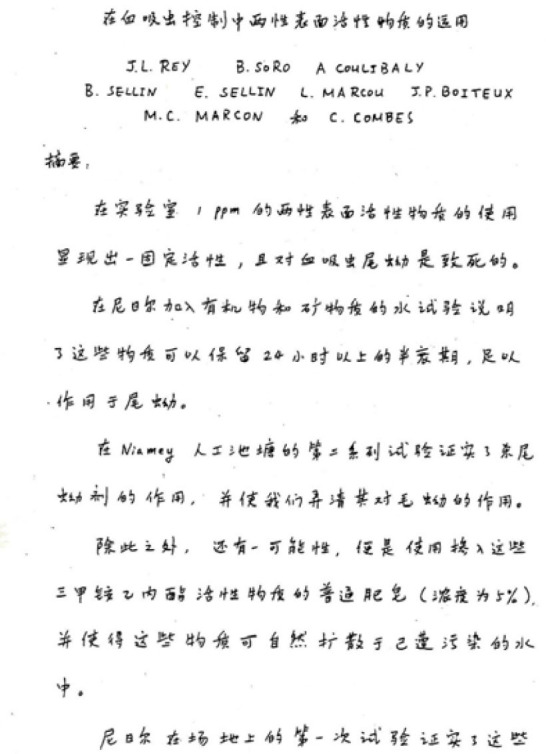 在血吸虫控制中两性表面活性物质的运用
J.L. REY B. SORO A COULIBALY
B. SELLIN E. SELLIN L. MARCOU J.P. BOITEUX
M.C. MARCON 和 C. COMBES
摘要:
在实验室 1 ppm 的两性表面活性物质的使用
显现出一固定活性,且对血吸虫尾蚴是致死的。
在尼日尔加入有机物和矿物质的水试验说明
了这些物质可以保留24小时以上的半衰期,足以
作用于尾蚴。
在 Niamey 人工池塘的第二系列试验证实了杀尾
蚴剂的作用,并使我们弄清其对毛蚴的作用。
除此之外,还有一可能性,便是使用掺入这些
三甲铵乙内酯活性物质的普通肥皂(浓度为5%),
并使得这些物质可自然扩散于已遭污染的水
中。
尼日尔在场地上的第一次试验证实了这些